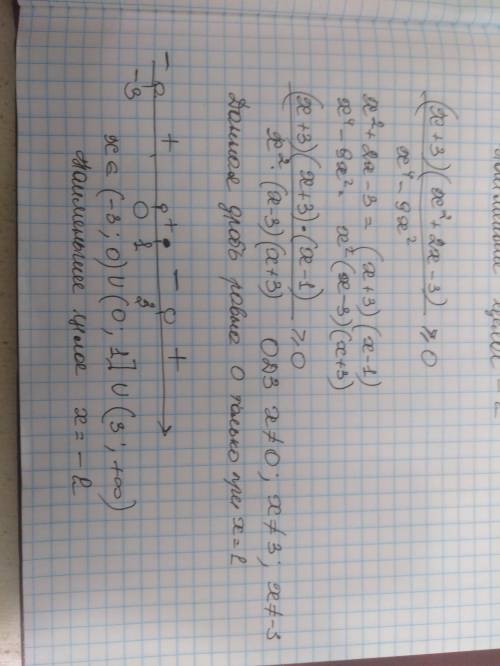 (x+3)(x²+2x-3) / x⁴-9x² ≥ 0
x²+2x-3 = (x+3)(x-1)
x⁴-9x² = x²(x-3)(x+3)
(x+3)(x+3)·(x-1) / x²·(x-3)(x+3) ≥ 0 ОДЗ x≠0; x≠3; x≠-3
Данная дробь равна 0 только при x=1
- + + - +
-3 0 1 3
x∈(-3; 0)∪(0; 1]∪(3; +∞)
Наименьшее целое x=-2